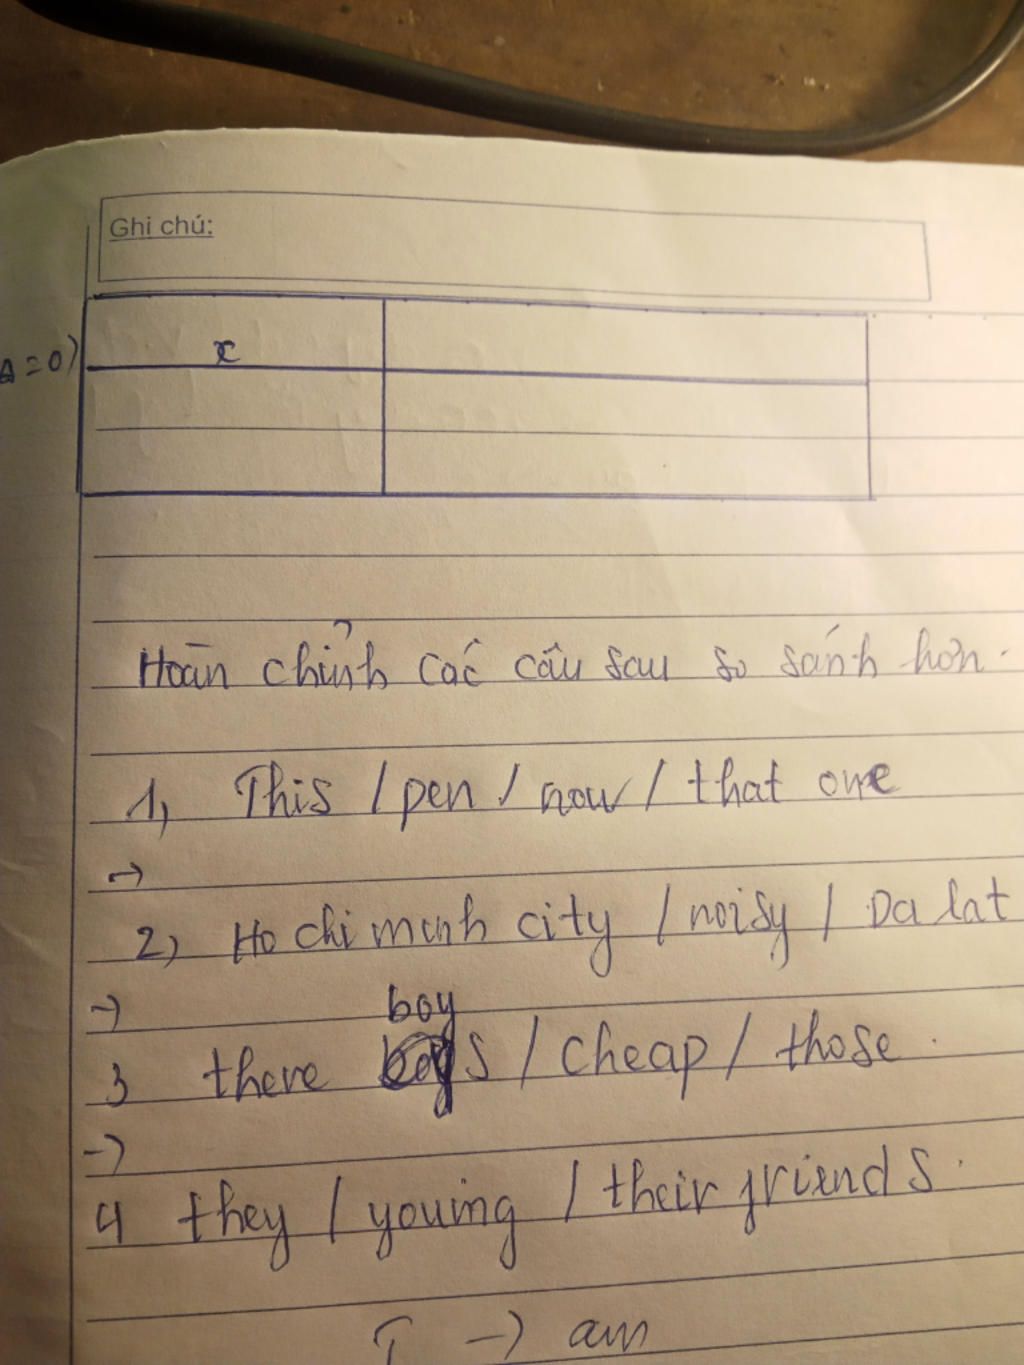 Ghi chú:
x
= 0)
Hoàn chỉnh các câu sau so sánh hơn.
1, This / pen / now / that one
→
2) Ho chi minh city / noisy / Da lat
→
boy
3 there boys / cheap / those.
→
4 they / young / their friends.
I → am